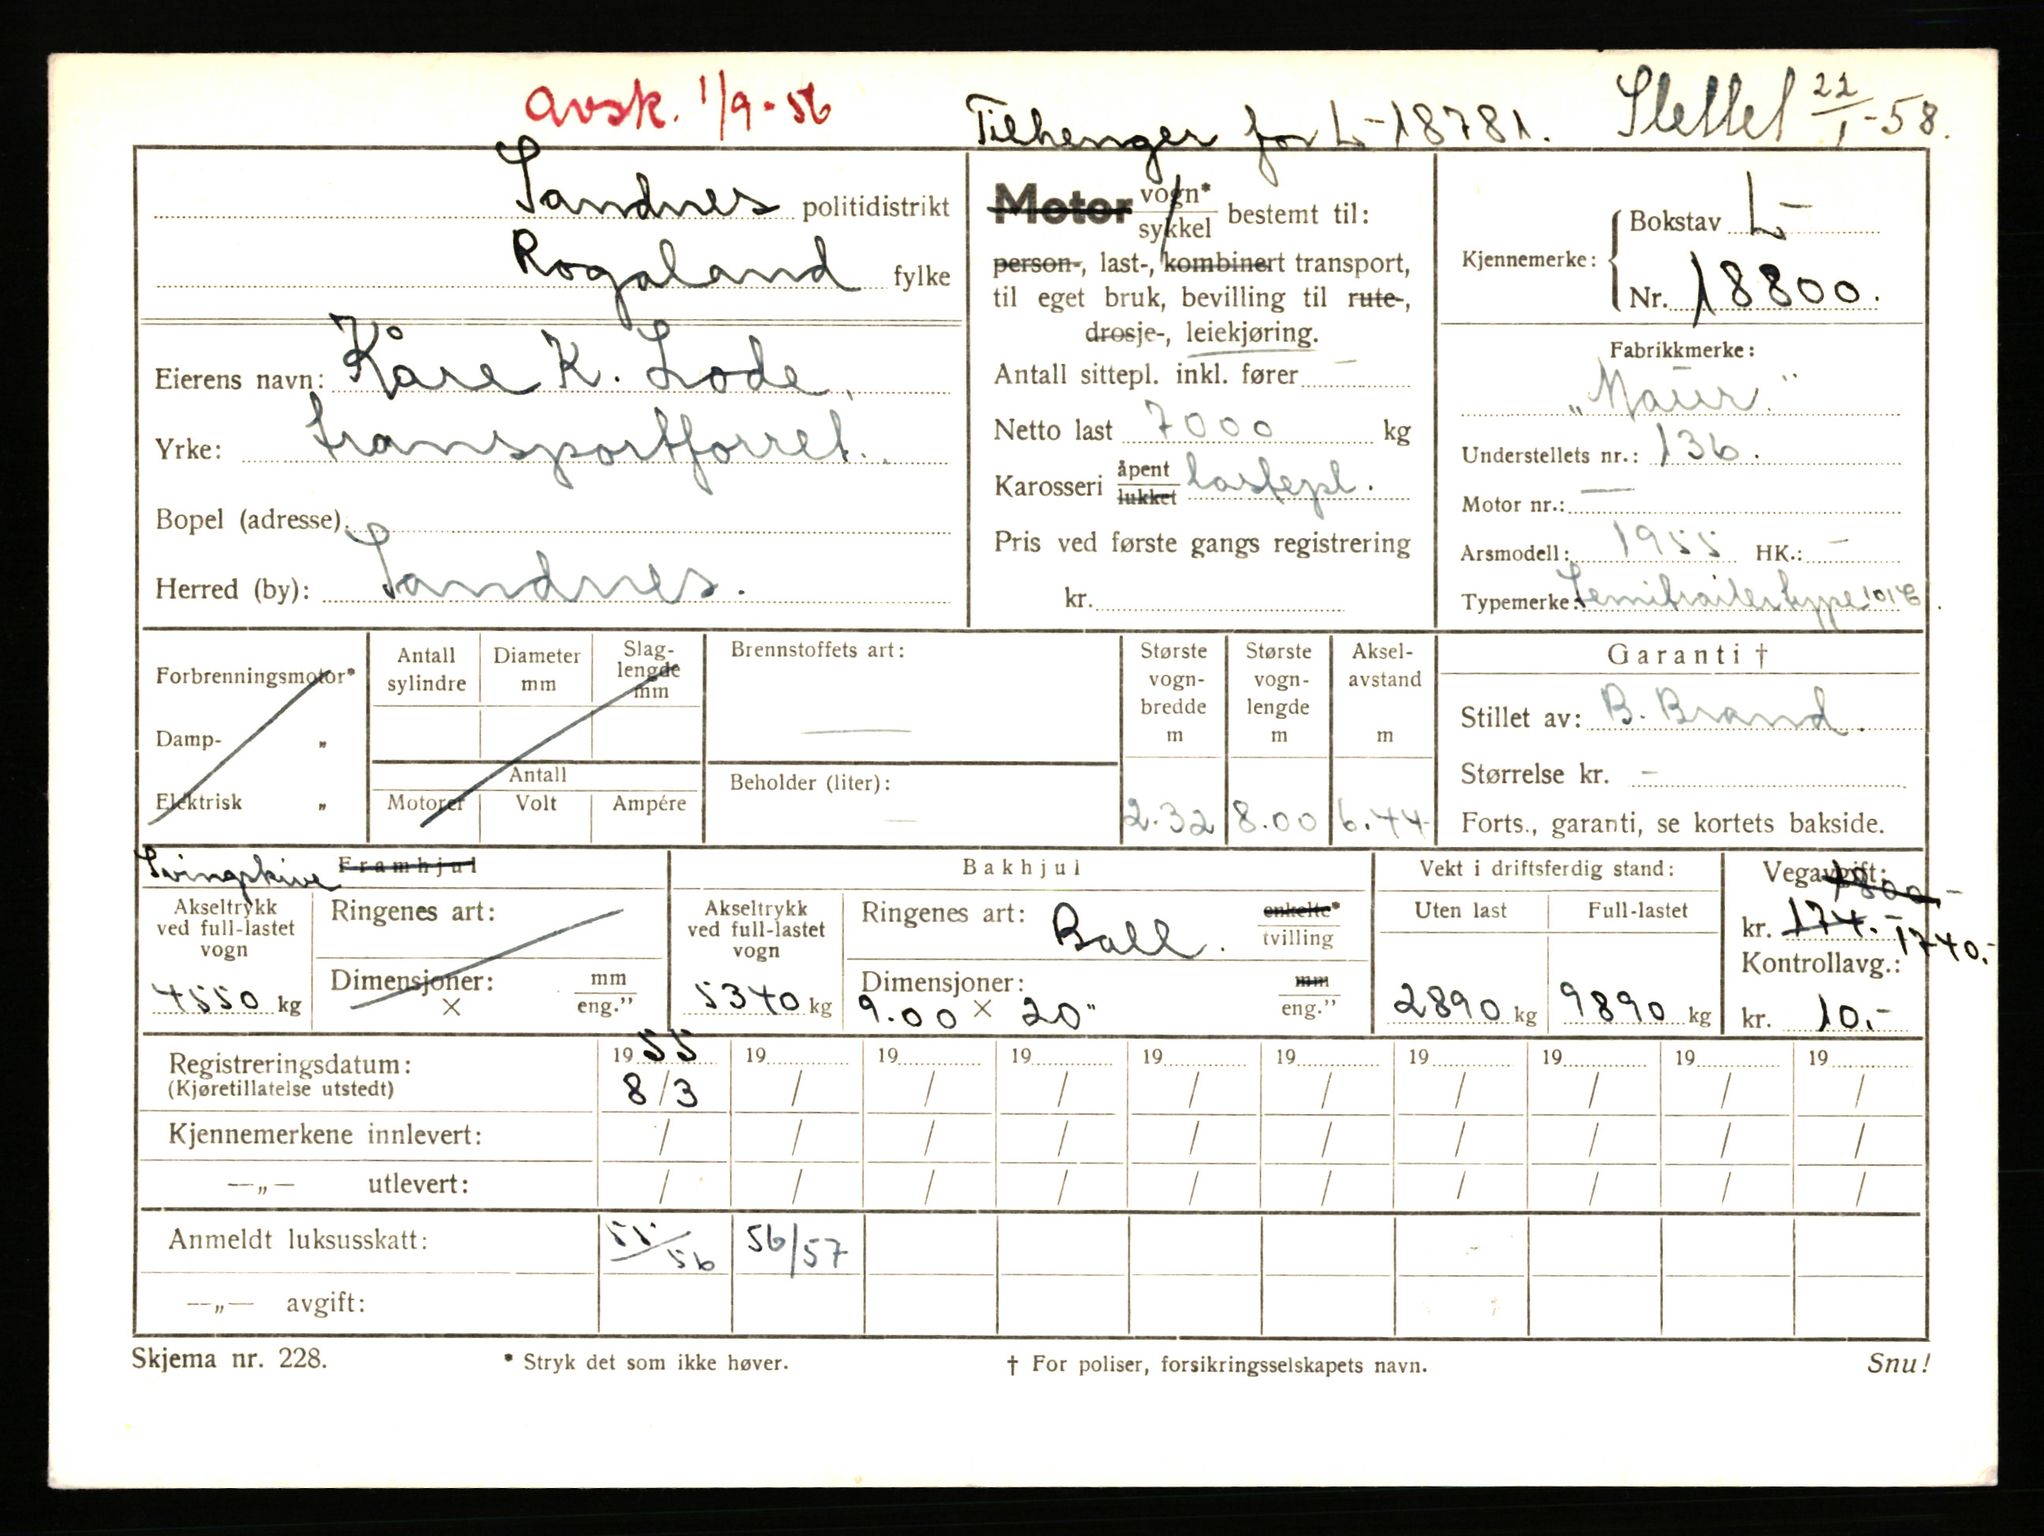 avsk. 1/9-56
Tilhenger for L-18781.
Slettet 22/1-58.
Sandnes politidistrikt
Rogaland fylke
Eierens navn: Kåre K. Lode.
Yrke: transportforret.
Bopel (adresse)
Herred (by): Sandnes.
Motor vogn* / sykkel bestemt til:
person-, last-, kombinert transport,
til eget bruk, bevilling til rute-,
drosje-, leiekjøring.
Antall sittepl. inkl. fører —
Netto last 7000 kg
Karosseri åpent / lukket lastepl.
Pris ved første gangs registrering
kr.
Kjennemerke: Bokstav L-
Nr. 18800.
Fabrikkmerke:
„Maur"
Understellets nr.: 136.
Motor nr.: —
Arsmodell: 1955 HK.: —
Typemerke: Semitrailer type
Forbrenningsmotor*
Damp- „
Elektrisk „
Antall sylindre
Diameter mm
Slag-lengde mm
Antall
Motorer Volt Ampére
Brennstoffets art: —
Beholder (liter): —
Største vogn-bredde m 2.32
Største vogn-lengde m 8.00
Aksel-avstand m 6.44
Garanti †
Stillet av: B. Brand.
Størrelse kr. —
Forts., garanti, se kortets bakside.
Svingskive Framhjul
Akseltrykk ved full-lastet vogn
4550 kg
Ringenes art:
Dimensjoner: mm
× eng.”
Bakhjul
Akseltrykk ved full-lastet vogn
5340 kg
Ringenes art: Ball. enkelte* / tvilling
Dimensjoner: mm
9.00 × 20" eng.”
Vekt i driftsferdig stand:
Uten last Full-lastet
2890 kg 9890 kg
Vegavgift: 1800,-
kr. 174.- 1740.-
Kontrollavg.:
kr. 10.-
Registreringsdatum: 1955 19 19 19 19 19 19 19 19 19
(Kjøretillatelse utstedt) 8/3 / / / / / / / / /
Kjennemerkene innlevert: / / / / / / / / / /
—„— utlevert: / / / / / / / / / /
Anmeldt luksusskatt: 55/56 56/57
—„— avgift:
Skjema nr. 228. * Stryk det som ikke høver. † For poliser, forsikringsselskapets navn. Snu!